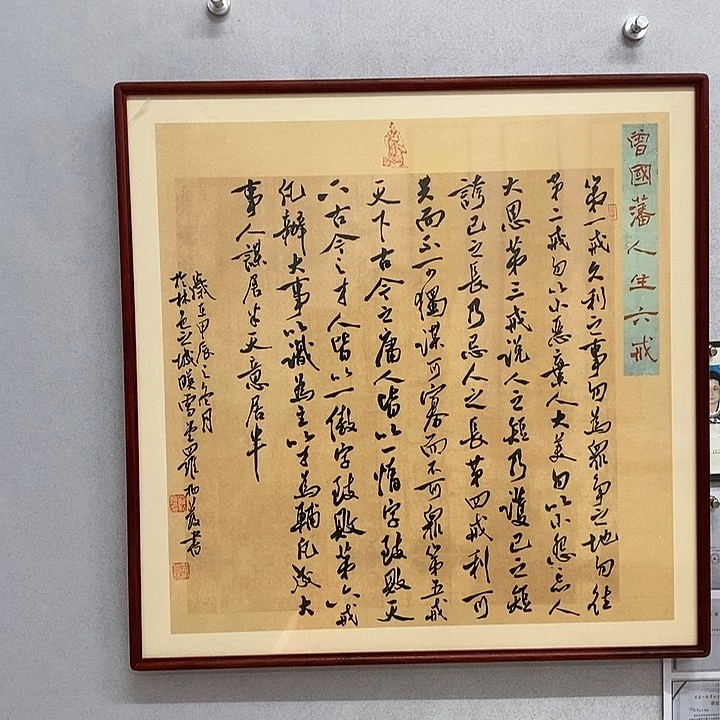 曾國藩人生六戒
第一戒久利之事勿為眾爭之地勿往
第二戒勿以小惡棄人大美勿以小怨忘人
大恩第三戒說人之短乃護己之短
誇己之長乃忌人之長第四戒利可
共而不可獨謀可寡而不可眾第五戒
天下古今之庸人皆以一惰字致敗天
下古今之才人皆以一傲字致敗第六戒
凡辦大事以識為主以才為輔凡成大
事人謀居半天意居半
歲在甲辰之冬月
於林之城雪堂羅書